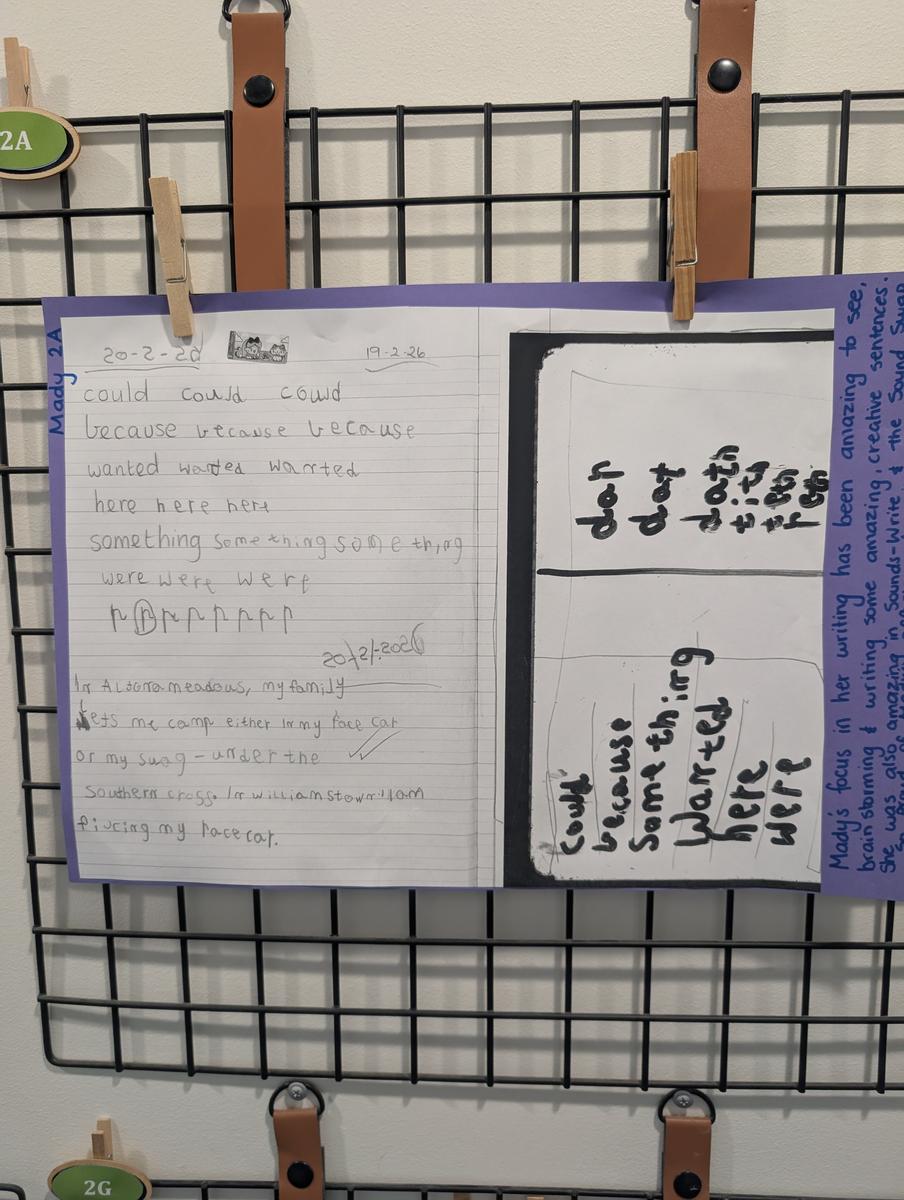 2A
Mady 2A
20-2-26
19-2-26
could could could
because because because
wanted wanted wanted
here here here
something something something
were were were
n n n n n n n n
20/2/2026
In Altona meadows, my family
lets me camp either in my race car
or my swag - under the
Southern cross. In williamstown I am
fixing my race car.
dan
dat
dath
tith
teth
peth
could
because
something
wanted
here
were
Mady's focus in her writing has been amazing to see,
brainstorming & writing some amazing, creative sentences.
She was also amazing in Sounds-Write & the Sound Swap
So Proud of
2G